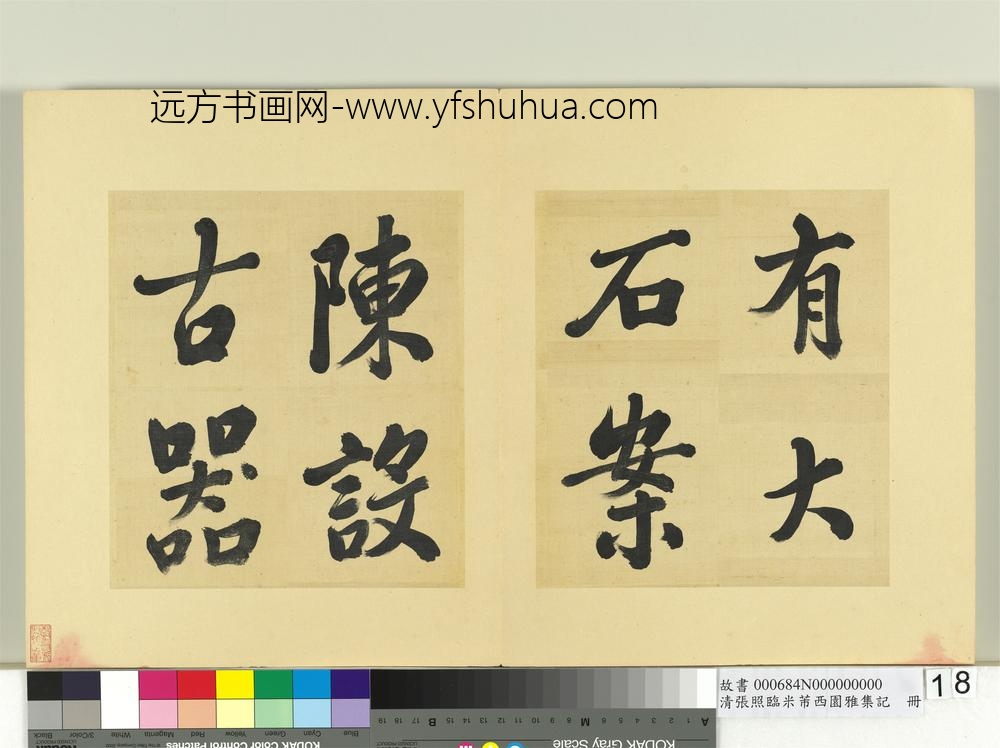 远方书画网-www.yfshuhua.com
有大
石案
陳設
古器
故書 000684N000000000
清張照臨米芾西園雅集記 冊
18
Black
3/Color
White
Magenta
Red
Yellow
Green
Cyan
Blue
KODAK Color Control Patches
KODAK Gray Scale
A 1 2 3 4 5 6 M 8 9 10 11 12 13 14 15 B 17 18 19